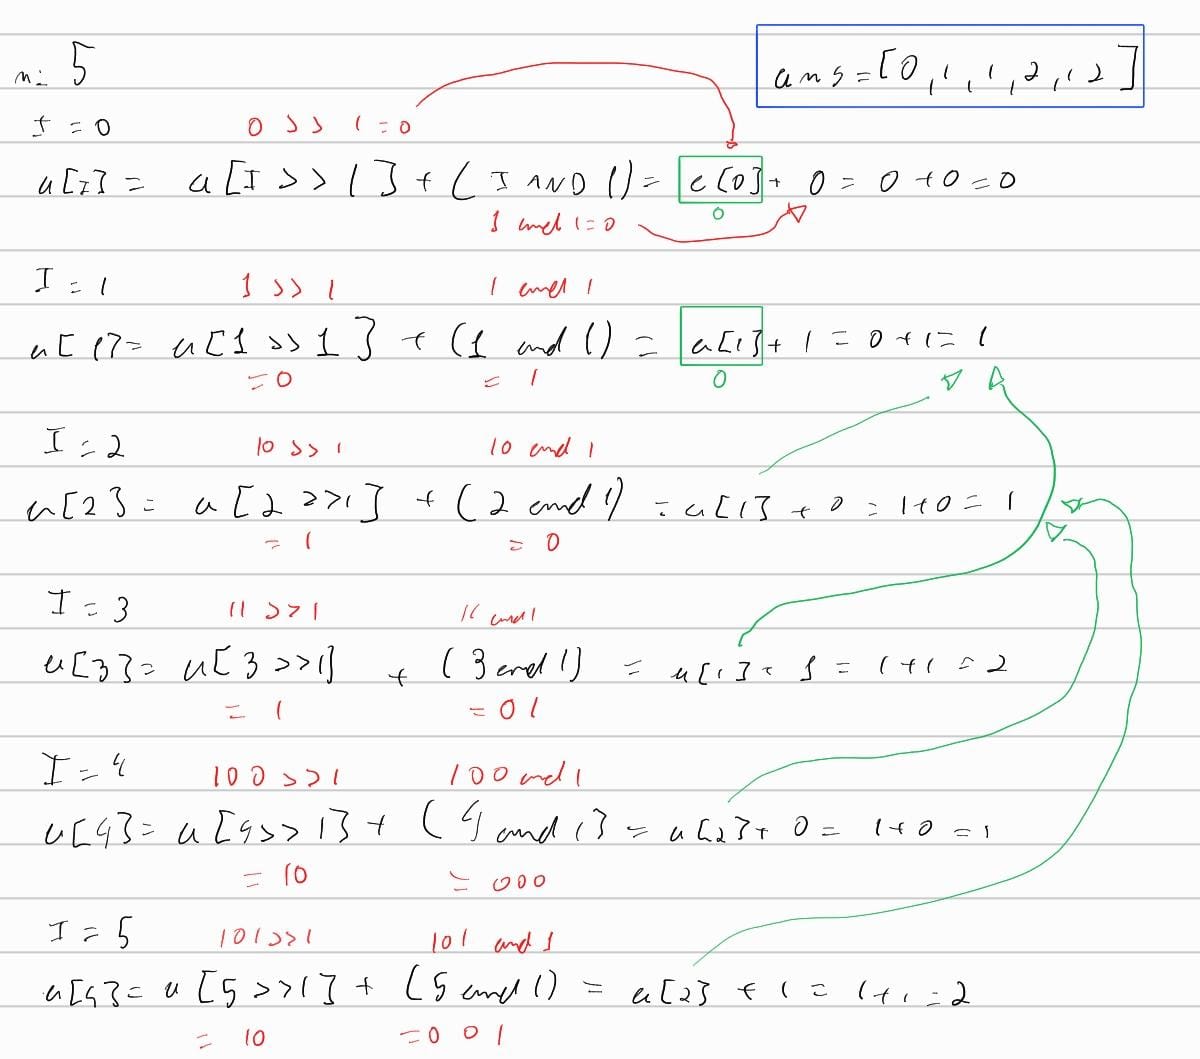 n: 5
ans=[0,1,1,2,1 2]
I = 0 0 >> 1 = 0
a[I] = a[I >> 1] + (I AND 1) = c[0] + 0 = 0 + 0 = 0
1 and 1 = 0 0
I = 1 1 >> 1 1 and 1
a[1] = a[1 >> 1] + (1 and 1) = a[1] + 1 = 0 + 1 = 1
= 0 = 1 0
I = 2 10 >> 1 10 and 1
a[2] = a[2 >> 1] + (2 and 1) = a[1] + 0 = 1+0 = 1
= 1 = 0
I = 3 11 >> 1 11 and 1
a[3] = a[3 >> 1] + (3 and 1) = a[1] + 1 = 1+1 = 2
= 1 = 01
I = 4 100 >> 1 100 and 1
a[4] = a[4 >> 1] + (4 and 1] = a[2] + 0 = 1+0 = 1
= 10 = 000
I = 5 101 >> 1 101 and 1
a[4] = a[5 >> 1] + (5 and 1) = a[2] + 1 = 1+1 = 2
= 10 = 001